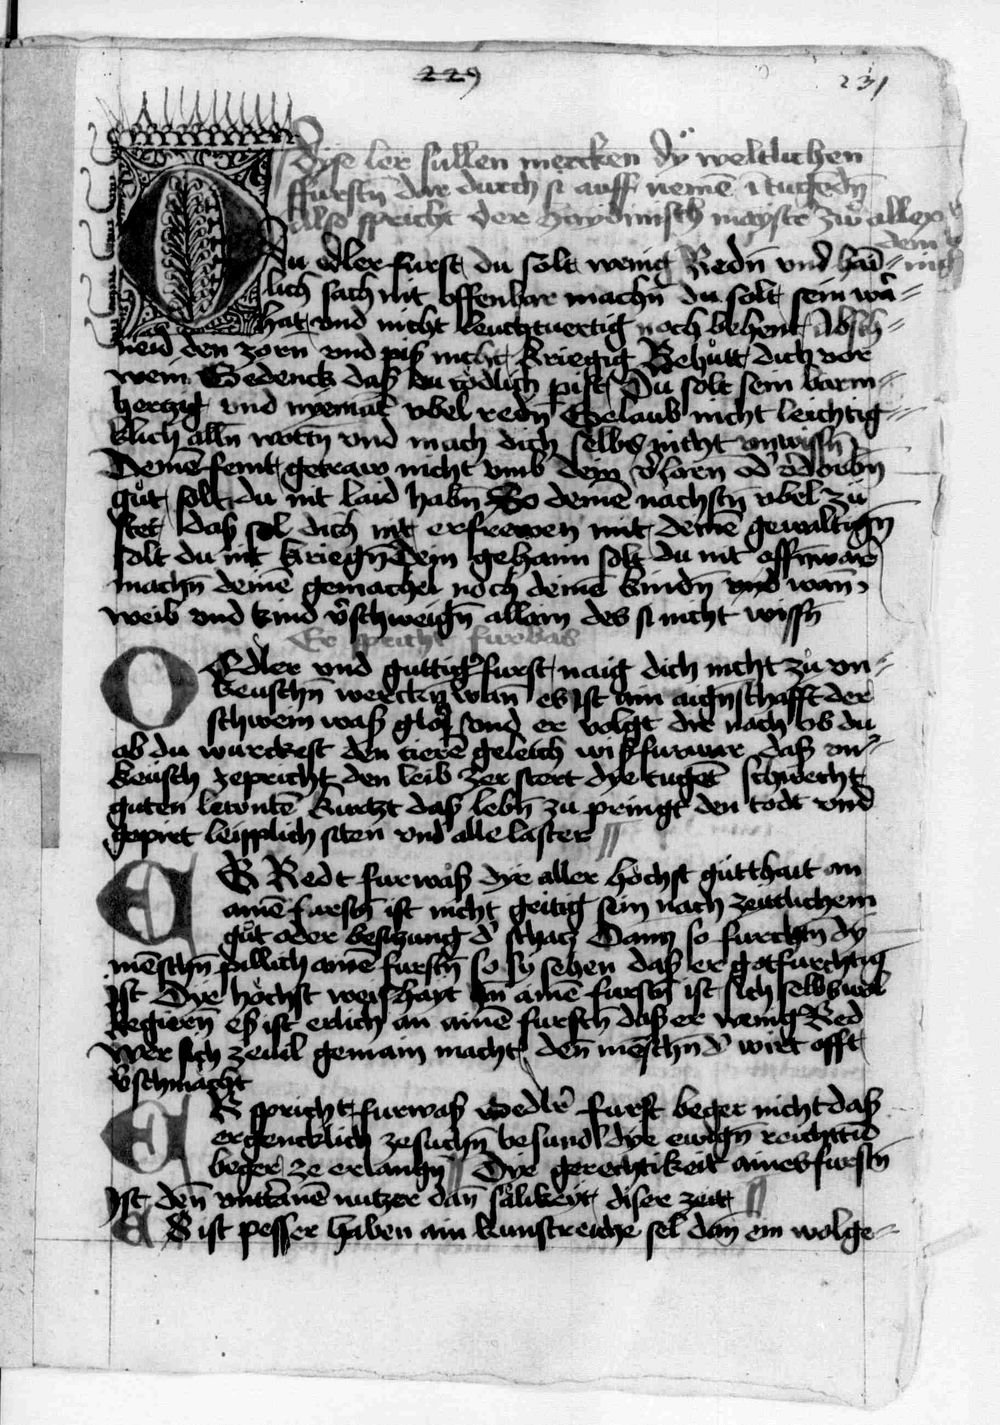 229
231
Dyse ler sullen mercken dÿ weltlichen
ffurstn̄ dar durch si auff nemē ī tugēdn̄
Also spricht der haydnisch mayster zw allex
dem
Ou edler furst du solt wenig Redn̄ vnd haī-
lich sach nit offenbar machn̄ du solt sein wår-
hat vnd nicht leuchtuertig noch behent Absch-
neid den zorn vnd piß nicht kriegig Behůtt dich vor
wein Gedenck daß du tödlich pist Du solt sein barm-
hertzig vnd nyemāt vbel redn̄ Gelaub nicht leichtig-
klich alln̄ wortn̄ vnd mach dich selbs nicht vnwissn̄
Deinē feint getraw nicht vmb dem v̄loren od̄ v̄dorbn̄
gůt solt du nit laid habn̄ So deinē nachstn̄ vbel zů
stet daß sol dich nit erfrewen mit deinē gewaltign̄
solt du nit kriegn̄ Dein gehaim solt du nit offnwarē
machn̄ deinē gemachel noch deinē kindn̄ vnd wan
weib vnd kind v̄schweign̄ allain des si nicht wissn̄
Er spricht furbas
O Edler vnd guttiger furst naig dich nicht zů vn-
keuschn̄ werckn̄ wan es ist ain aignschafft der
schwein waß glori sind er volgt dir nach ob du
ob du wurckest den tierē geleich wiß furwar daß vn-
keusch zepricht den leib zerstert dye tugēt schwecht
guten lewntē kurtzt daß lebn̄ zu pringt den todt vnd
gepret leipplich siten vnd alle laster
ER Redt furwaß dye aller höchst gůtthait an
ainē furstn̄ ist nicht geitig sein nach zeittlichem
gůt oder besitzung d̄ schatz Dann so furchtn̄ dÿ
mēschn̄ pillich ainē furstn̄ so sÿ sehen daß er gotfurchtig
ist Dye höchst weishayt in ainē furstn̄ ist sich selbs wol
Regiern̄ eß ist erlich an ainē furstn̄ daß er wenig Red
Wer sich zeuil gemain macht den̄ mēschn̄ d̄ wirt offt
v̄schmächt
ER spricht furwaß O edlr̄ furst beger nicht daß
ergencklich zesuchn̄ besund̄ dye ewign̄ reichttū
beger ze erlangn̄ Dye gerechtikeit aines furstn̄
Ist den̄ vnttanē nutzer dan̄ sälikeyt diser zeitt
ES ist pesser haben ain kunstreiche sel dan̄ ein wolge-